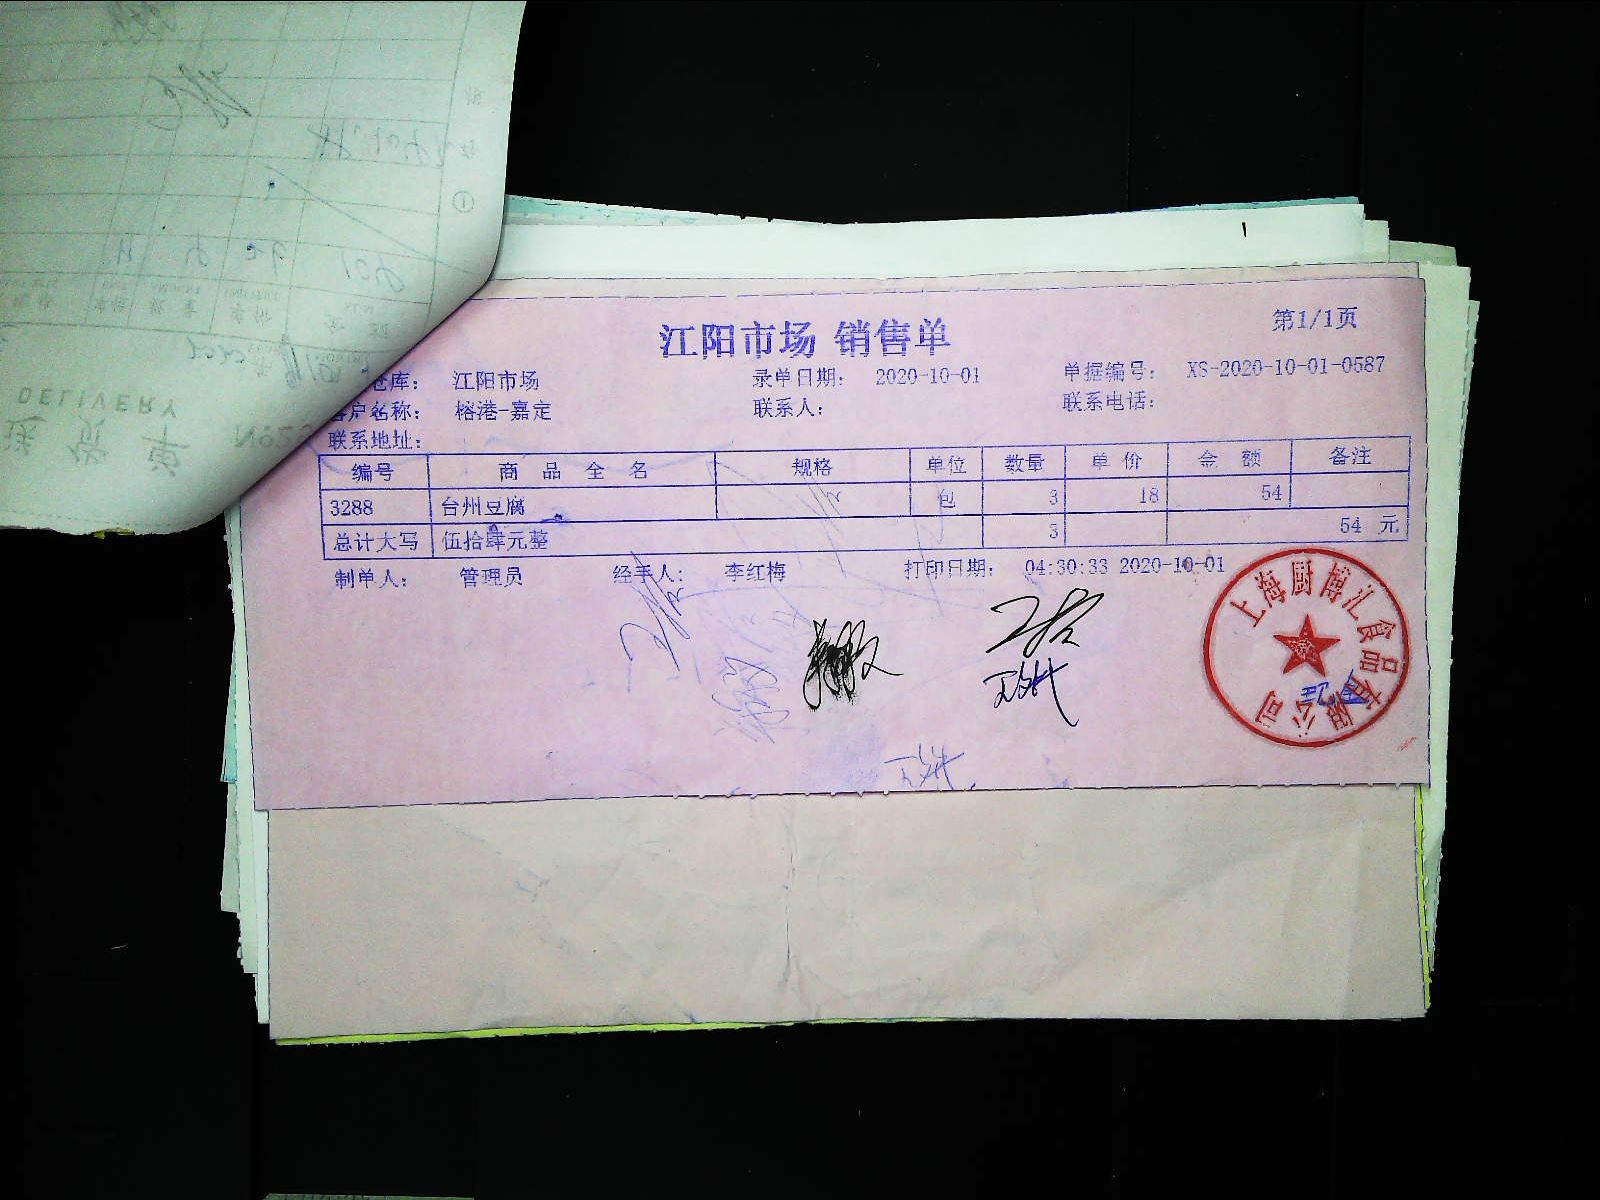 江阳市场 销售单
第1/1页
仓库： 江阳市场 录单日期： 2020-10-01 单据编号： XS-2020-10-01-0587
客户名称： 榕港-嘉定 联系人： 联系电话：
联系地址：
编号 商品全名 规格 单位 数量 单价 金额 备注
3288 台州豆腐 包 3 18 54
总计大写 伍拾肆元整 3 54 元
制单人： 管理员 经手人： 李红梅 打印日期： 04:30:33 2020-10-01
上海厨博汇食品有限公司
DELIVERY
送货单